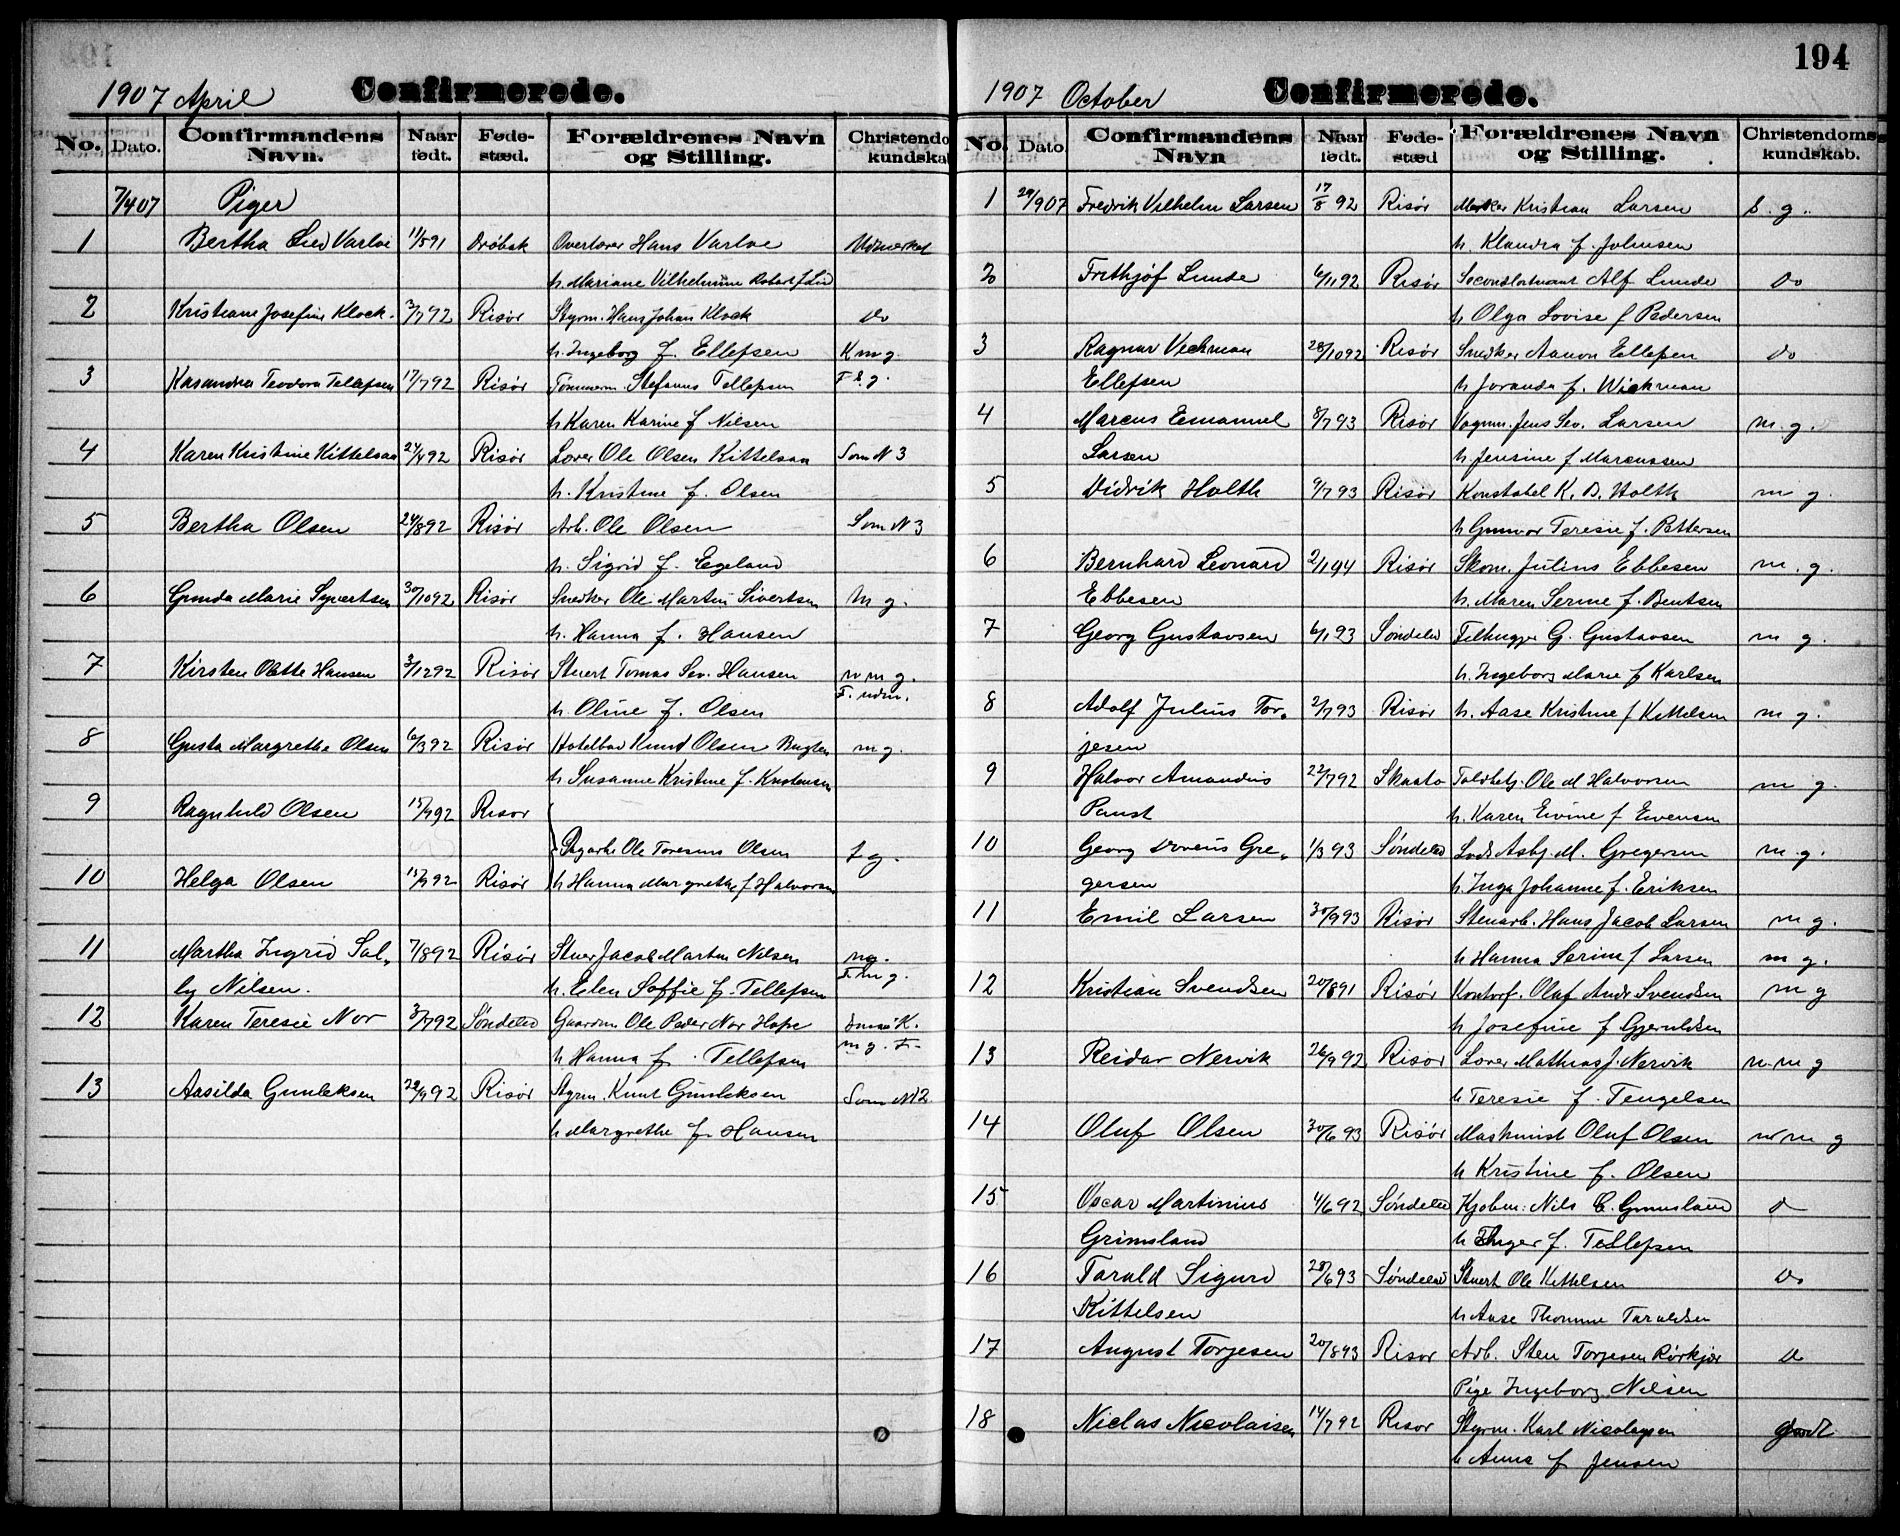 1907 April Confirmerede.
No. Dato. Confirmandens Navn. Naar født. Fødestæd. Forældrenes Navn og Stilling. Christendo kundskab
7/4 07 Piger
1 Bertha Lied Varloe 11/5 91 Drøbak Overlærer Hans Varloe Udmerket
h. Mariane Vilhelmine Robert f Lie
2 Kristiane Josefine Klock. 3/7 92 Risør Styrm. Hans Johan Klock do
h. Ingeborg f. Ellefsen K m g.
3 Kasandra Teodora Tellefsen 17/7 92 Risør Tømmerm. Stefanus Tellefsen F s g.
h Karen Karine f Nilsen
4 Karen Kristine Kittelsen 24/4 92 Risør Lover Ole Olsen Kittelsen Som N 3
h. Kristine f. Olsen
5 Bertha Olsen 24/8 92 Risør Arb. Ole Olsen Som N 3
h. Sigrid f. Egeland
6 Gunda Marie Syvertsen 30/10 92 Risør Snedker Ole Martin Sivertsen M g.
h. Hanna f. Hansen
7 Kirsten Olette Hansen 3/12 92 Risør Stuert Tomas Sev. Hansen n m g.
F. udm.
h. Oline f. Olsen
8 Gusta Margrethe Olsen 6/3 92 Risør Knud Olsen m g.
h Susanne Kristine f. Kristensen
9 Ragnhild Olsen 15/7 92 Risør
Ole Toresius Olsen s g.
10 Helga Olsen 15/7 92 Risør h Hanna Margrethe f Halvorsen
11 Martha Ingrid Sol- 7/8 92 Risør Stuer Jacob Martin Nilsen mg.
F m g.
by Nilsen. h. Elen Soffie f. Tellefsen
12 Karen Teresie Nor 3/7 92 Søndeled Gaardm Ole Peder Nor Hope K.
m g. F.
h Hanna f. Tellefsen
13 Aasilda Gunleksen 22/4 92 Risør Styrm. Knut Gunleksen Som N 12
h Margrethe f. Hansen
194
1907 October Confirmerede.
No. Dato Confirmandens Navn Naar født. Fødestæd Forældrenes Navn og Stilling. Christendoms kundskab.
1 29/9 07 Fredrik Vilhelm Larsen 17/8 92 Risør Kristian Larsen s. g.
h. Klandra f. Johnsen
2 Frithjof Lunde 6/11 92 Risør Secondløitnant Alf Lunde do
h Olga Lovise f Pedersen
3 Ragnar Vickman 28/10 92 Risør Snedker Aanon Ellefsen do
Ellefsen h Joranda f. Wickman
4 Marcus Emanuel 8/7 93 Risør Vognm. Jens Sev. Larsen m. g.
Larsen h Jensine f Marcussen
5 Didrik Holth 9/7 93 Risør Konstabel K. D. Holth m g.
h Gunvor Teresie f. Pettersen
6 Bernhard Leonard 2/1 94 Risør Skom. Julius Ebbesen m. g.
Ebbesen h. Maren Serine f. Bentsen
7 Georg Gustavsen 6/1 93 Søndeled G. Gustavsen m g.
h. Ingeborg Marie f Karlsen
8 Adolf Julius Tor- 2/7 93 Risør h. Aase Kristine f Kittelsen m g.
jesen
9 Halvor Amandus 22/7 92 Skaatø Toldbetj. Ole M Halvorsen m g.
Paust h. Karen Eivine f Evensen
10 Georg Doreus Gre- 1/3 93 Søndeled Lods Asbj. M. Gregersen m. g.
gersen h. Inga Johanne f. Eriksen
11 Emil Larsen 30/9 93 Risør Stenarb. Hans Jacob Larsen m g.
h Hanna Serine f Larsen m g.
12 Kristian Svendsen 20/8 91 Risør Kontorf. Oluf Andr Svendsen m g
h Josefine f Gjeruldsen
13 Reidar Nervik 26/9 92 Risør Lærer Mathias J. Nervik n. m g
h Teresie f. Tengelsen
14 Oluf Olsen 30/6 93 Risør Maskinist Oluf Olsen n m g
h Kristine f. Olsen
15 Oscar Martinius 4/6 92 Søndeled Kjøbm. Nils C. Grimsland d
Grimsland h Inger f. Tellefsen
16 Tarald Sigurd 28/6 93 Søndeled Stuert Ole Kittelsen do
Kittelsen h Aase Thomine Taraldsen
17 August Torjesen 20/8 93 Risør Arb. Sten Torjesen Rørkjær d
Pige Ingeborg Nilsen
18 Niclas Nicolaisen 14/7 92 Risør Styrm. Karl Nicolaysen godt
h Anne f Jensen